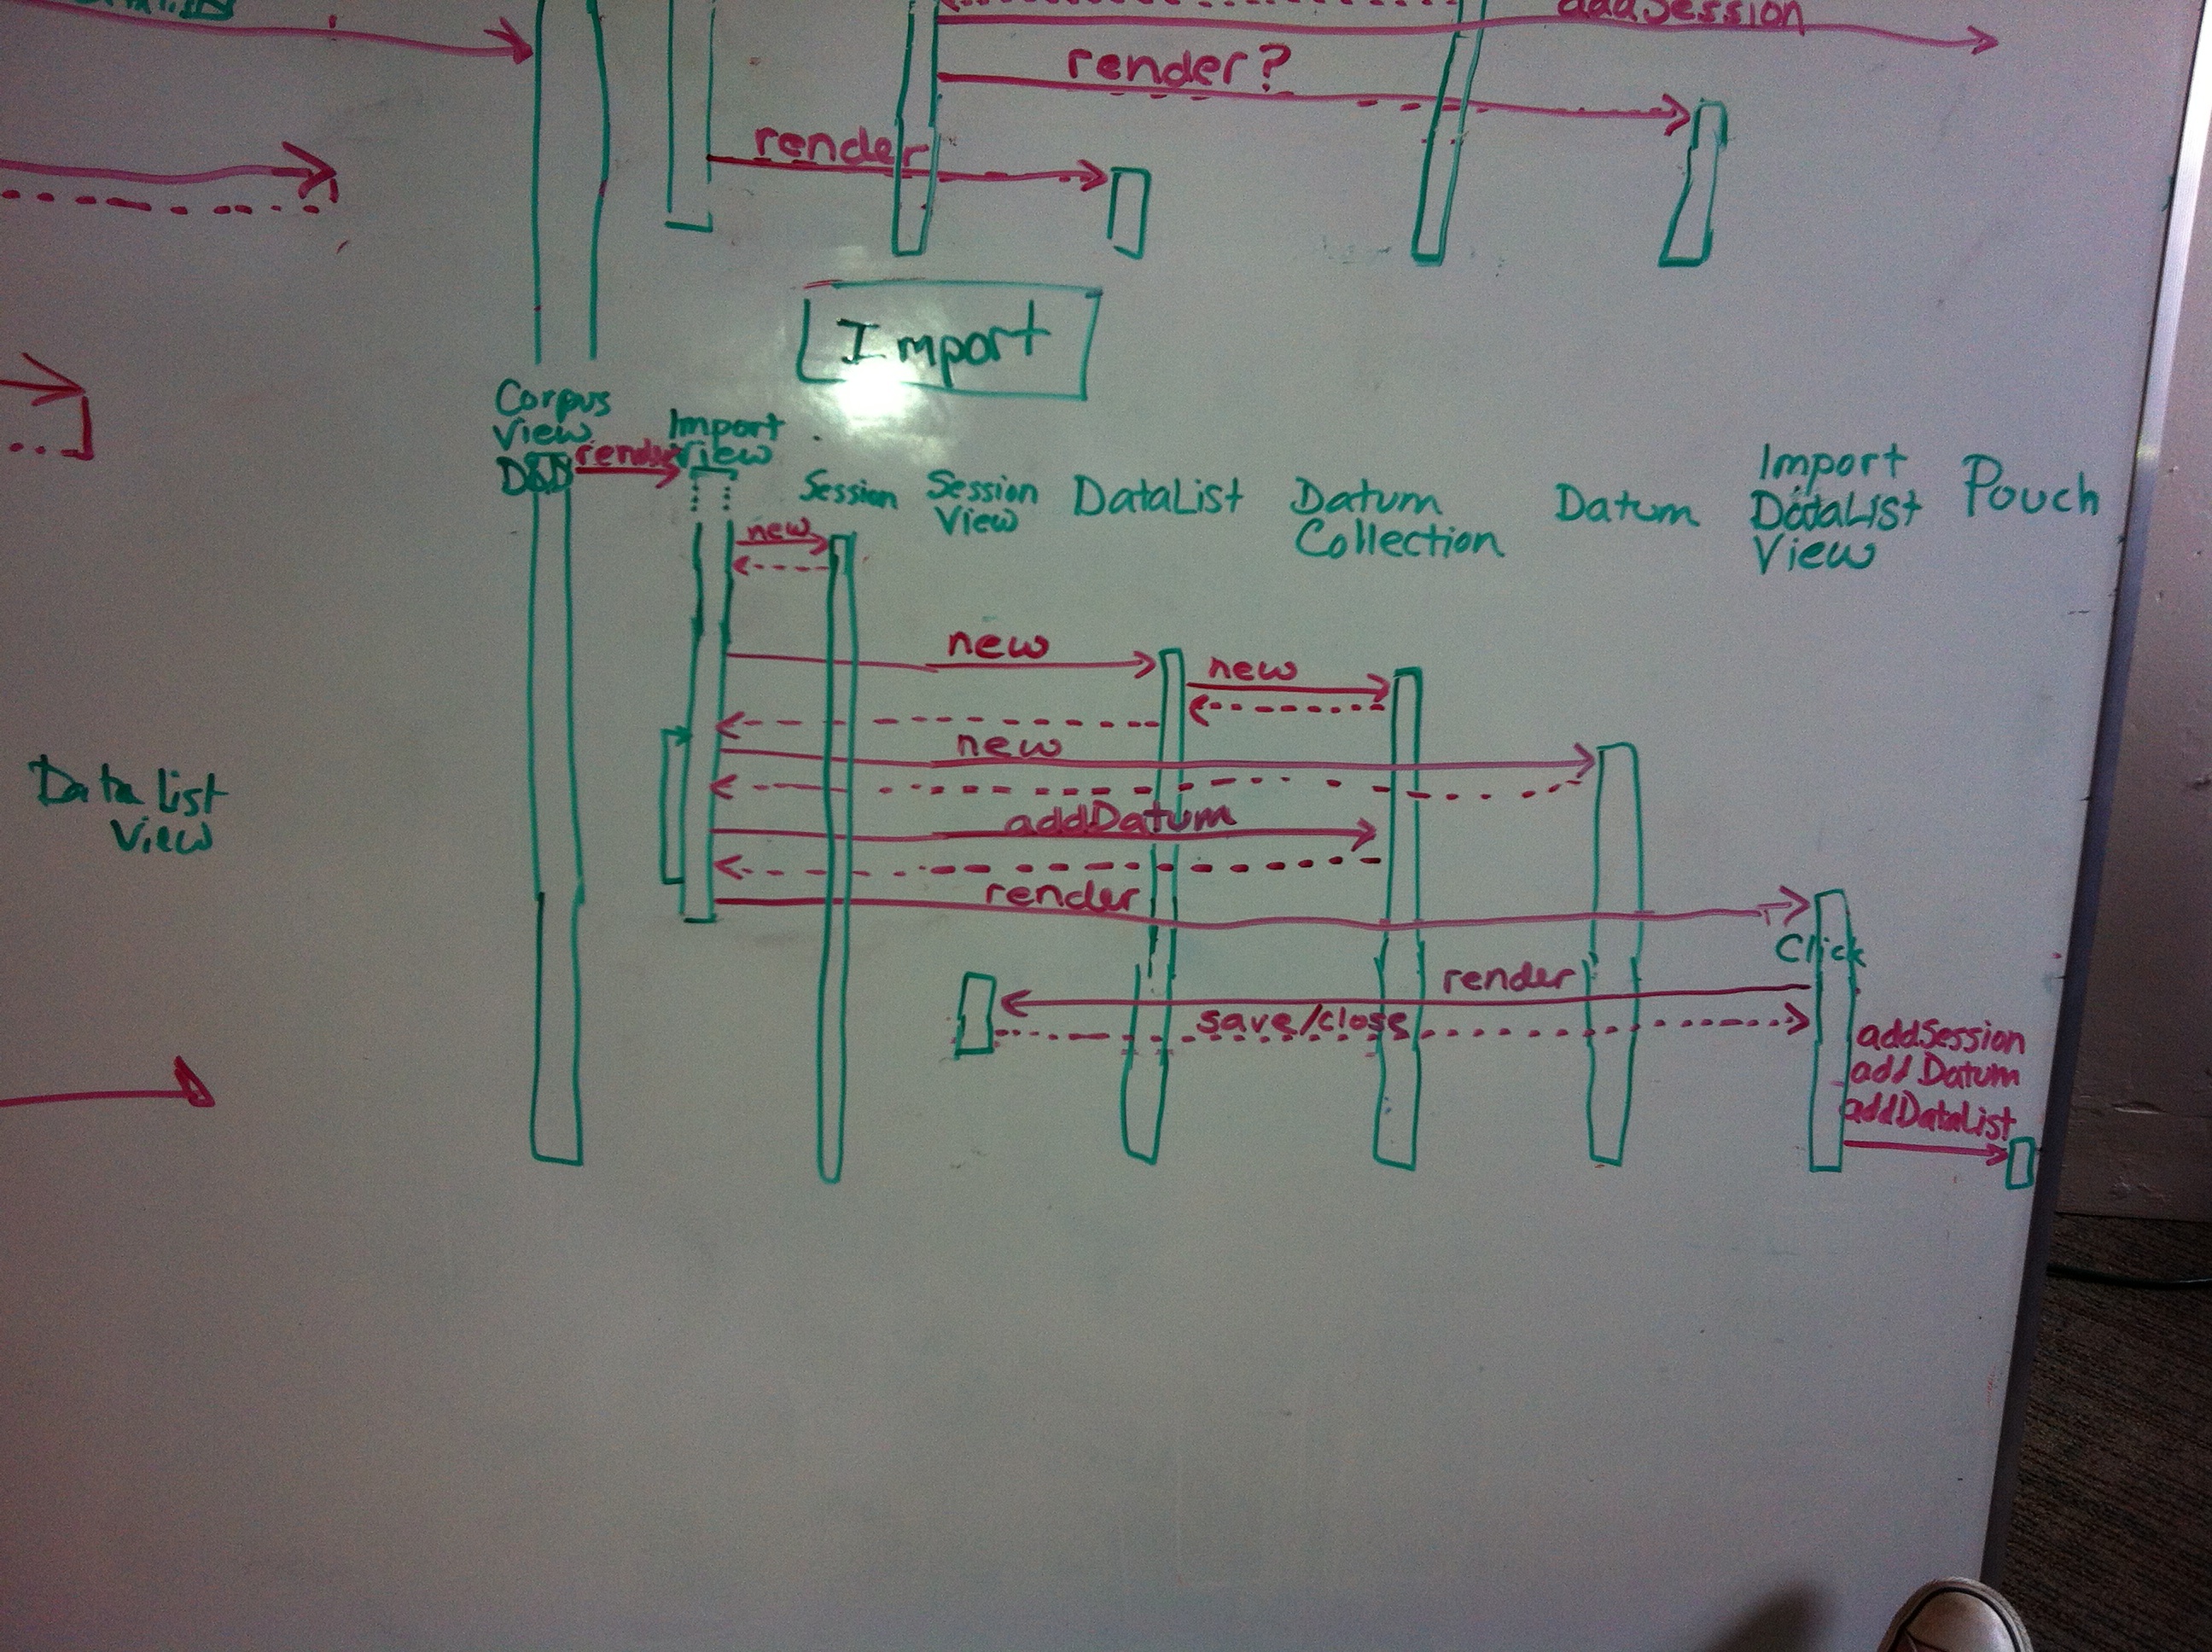 addSession
render?
render
Import
Corpus
View
D&D
render
Import
View
Session
Session
View
DataList
Datum
Collection
Datum
Import
DataList
View
Pouch
new
new
new
new
addDatum
render
Click
render
save/close
addSession
addDatum
addDataList
Data list
View